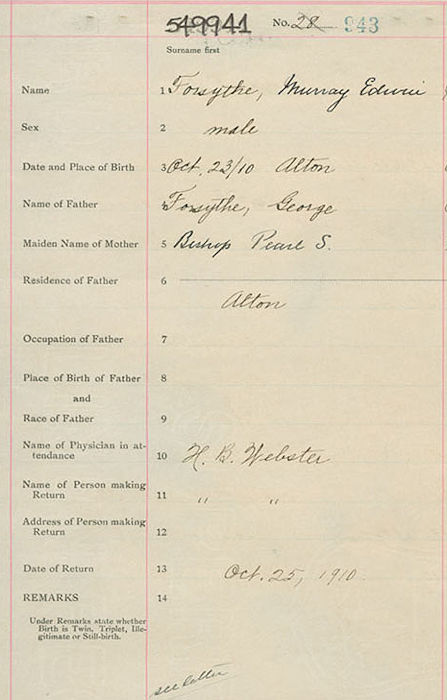 549941 No. 28 943
Surname first
Name 1 Forsythe, Murray Edwin
Sex 2 male
Date and Place of Birth 3 Oct. 23/10 Alton
Name of Father 4 Forsythe, George
Maiden Name of Mother 5 Bishop Pearl S.
Residence of Father 6
Alton
Occupation of Father 7
Place of Birth of Father 8
and
Race of Father 9
Name of Physician in at-
tendance 10 H. B. Webster
Name of Person making
Return 11 " "
Address of Person making
Return 12
Date of Return 13 Oct. 25, 1910.
REMARKS 14
Under Remarks state whether
Birth is Twin, Triplet, Ille-
gitimate or Still-birth.
see letter